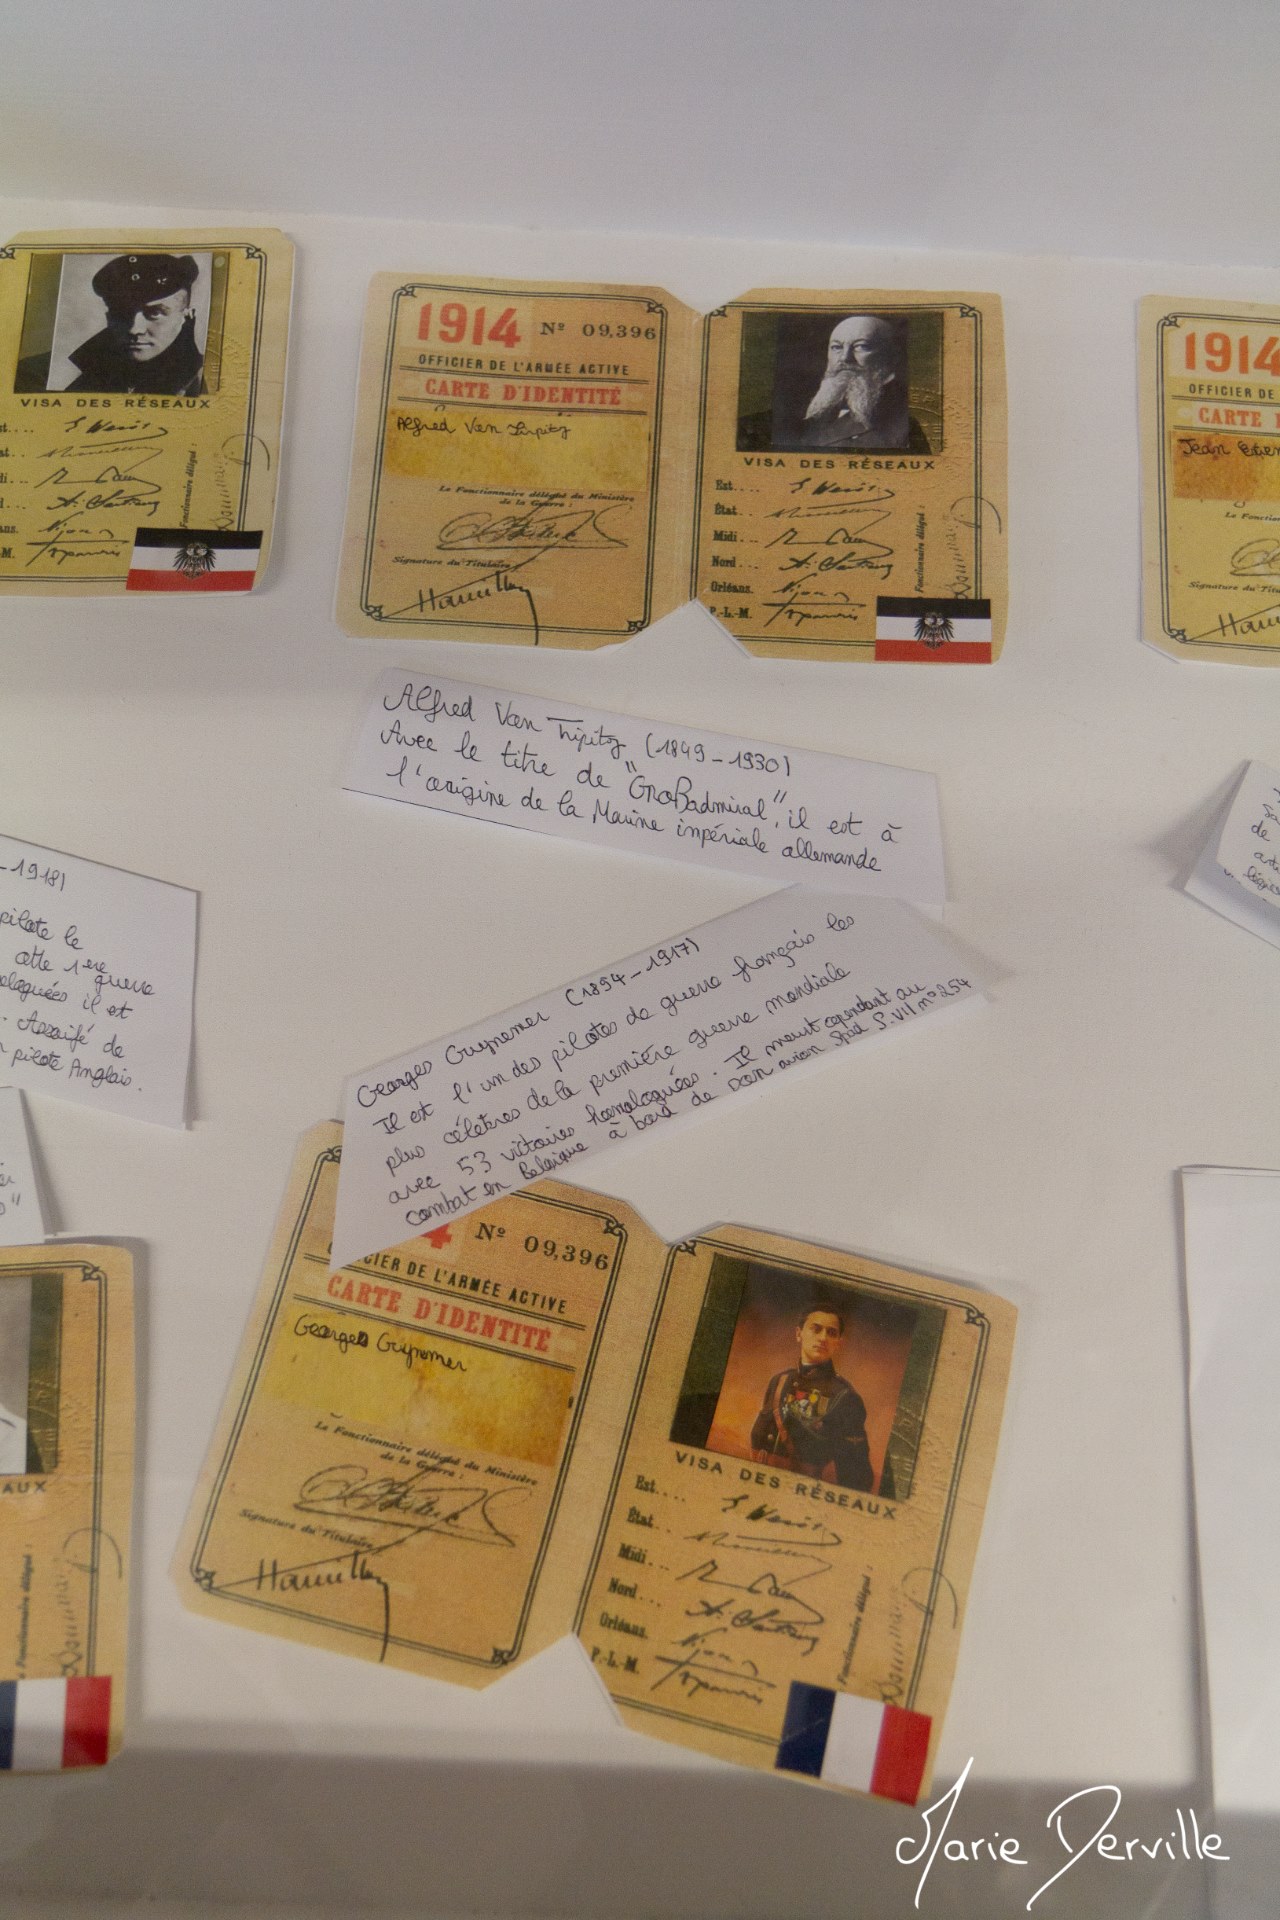 VISA DES RÉSEAUX
Fonctionnaire délégué :
1914 Nº 09,396
OFFICIER DE L'ARMÉE ACTIVE
CARTE D'IDENTITÉ
Alfred Van Tirpitz
Le Fonctionnaire délégué du Ministère
de la Guerre :
Signature du Titulaire
VISA DES RÉSEAUX
Est....
État....
Midi...
Nord...
Orléans.
P.-L.-M.
Fonctionnaire délégué :
1914
OFFICIER DE
CARTE
Jean
Le Fonc
Signature du Titu
Alfred Van Tripitz (1849-1930)
Avec le titre de "Großadmiral", il est à
l'origine de la Marine impériale allemande
-1918)
pilote le
cette 1ere guerre
il est
de
pilote Anglais.
de
Georges Guynemer (1894-1917)
Il est l'un des pilotes de guerre français les
plus célèbres de la première guerre mondiale
avec 53 victoires homologuées. Il meurt cependant au
combat en Belgique à bord de son avion Spad S.VII n°254
4 Nº 09,396
CIER DE L'ARMÉE ACTIVE
CARTE D'IDENTITÉ
Georges Guynemer
Le Fonctionnaire délégué du Ministère
de la Guerre :
Signature du Titulaire
VISA DES RÉSEAUX
Est....
État....
Midi...
Nord...
Orléans.
P.-L.-M.
Fonctionnaire délégué :
AUX
Marie Derville